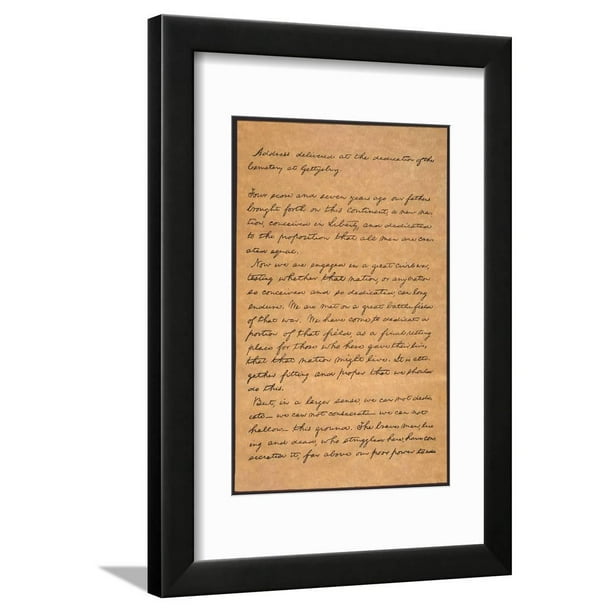 Address delivered at the dedication of the
Cemetery at Gettysburg
Four score and seven years ago our fathers
brought forth on this continent, a new na-
tion, conceived in Liberty, and dedicated
to the proposition that all men are cre-
ated equal.
Now we are engaged in a great civil war,
testing whether that nation, or any nation
so conceived and so dedicated, can long
endure. We are met on a great battle-field
of that war. We have come to dedicate a
portion of that field, as a final resting
place for those who here gave their lives,
that that nation might live. It is alto-
gether fitting and proper that we should
do this.
But, in a larger sense, we can not dedi-
cate— we can not consecrate— we can not
hallow— this ground. The brave men, liv-
ing and dead, who struggled here, have con-
secrated it, far above our poor power to add